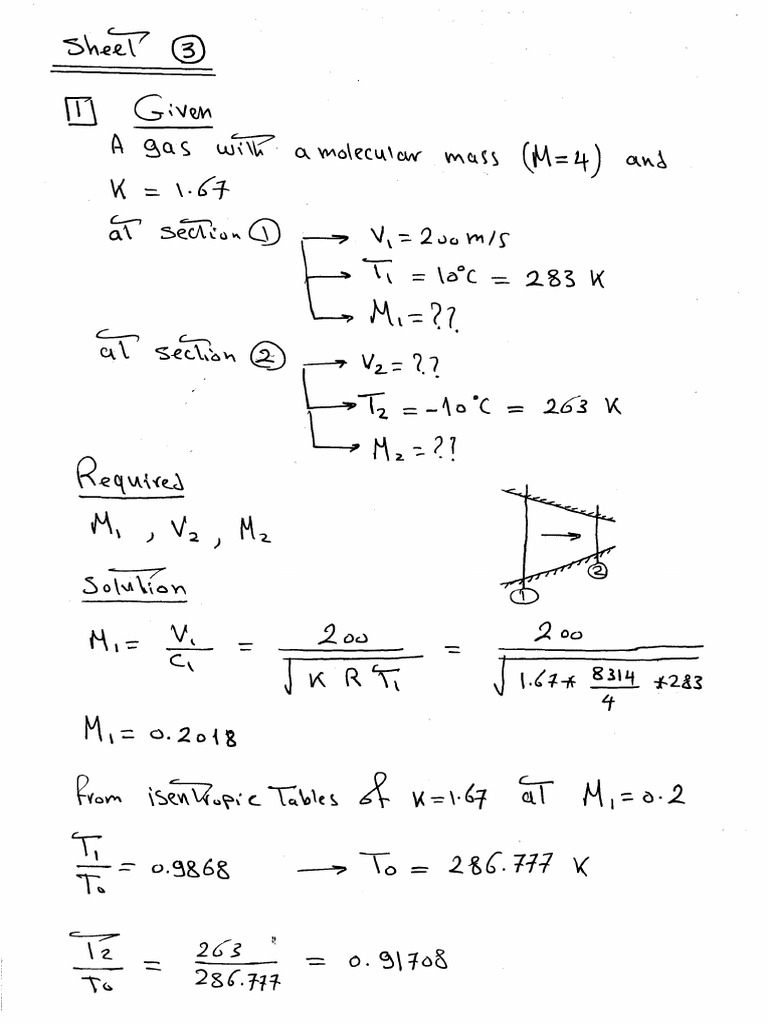 Sheet ③
1 Given
A gas with a molecular mass (M=4) and
K = 1.67
at section ① → V₁ = 200 m/s
→ T₁ = 10°C = 283 K
→ M₁ = ??
at section ② → V₂ = ??
→ T₂ = -10°C = 263 K
→ M₂ = ??
Required
M₁ , V₂ , M₂
① ②
Solution
M₁ = V₁/C₁ = 200/√(K R T₁) = 200/√(1.67 * 8314/4 * 283)
M₁ = 0.2018
from isentropic Tables of K=1.67 at M₁ = 0.2
T₁/T₀ = 0.9868 → T₀ = 286.777 K
T₂/T₀ = 263/286.777 = 0.91708